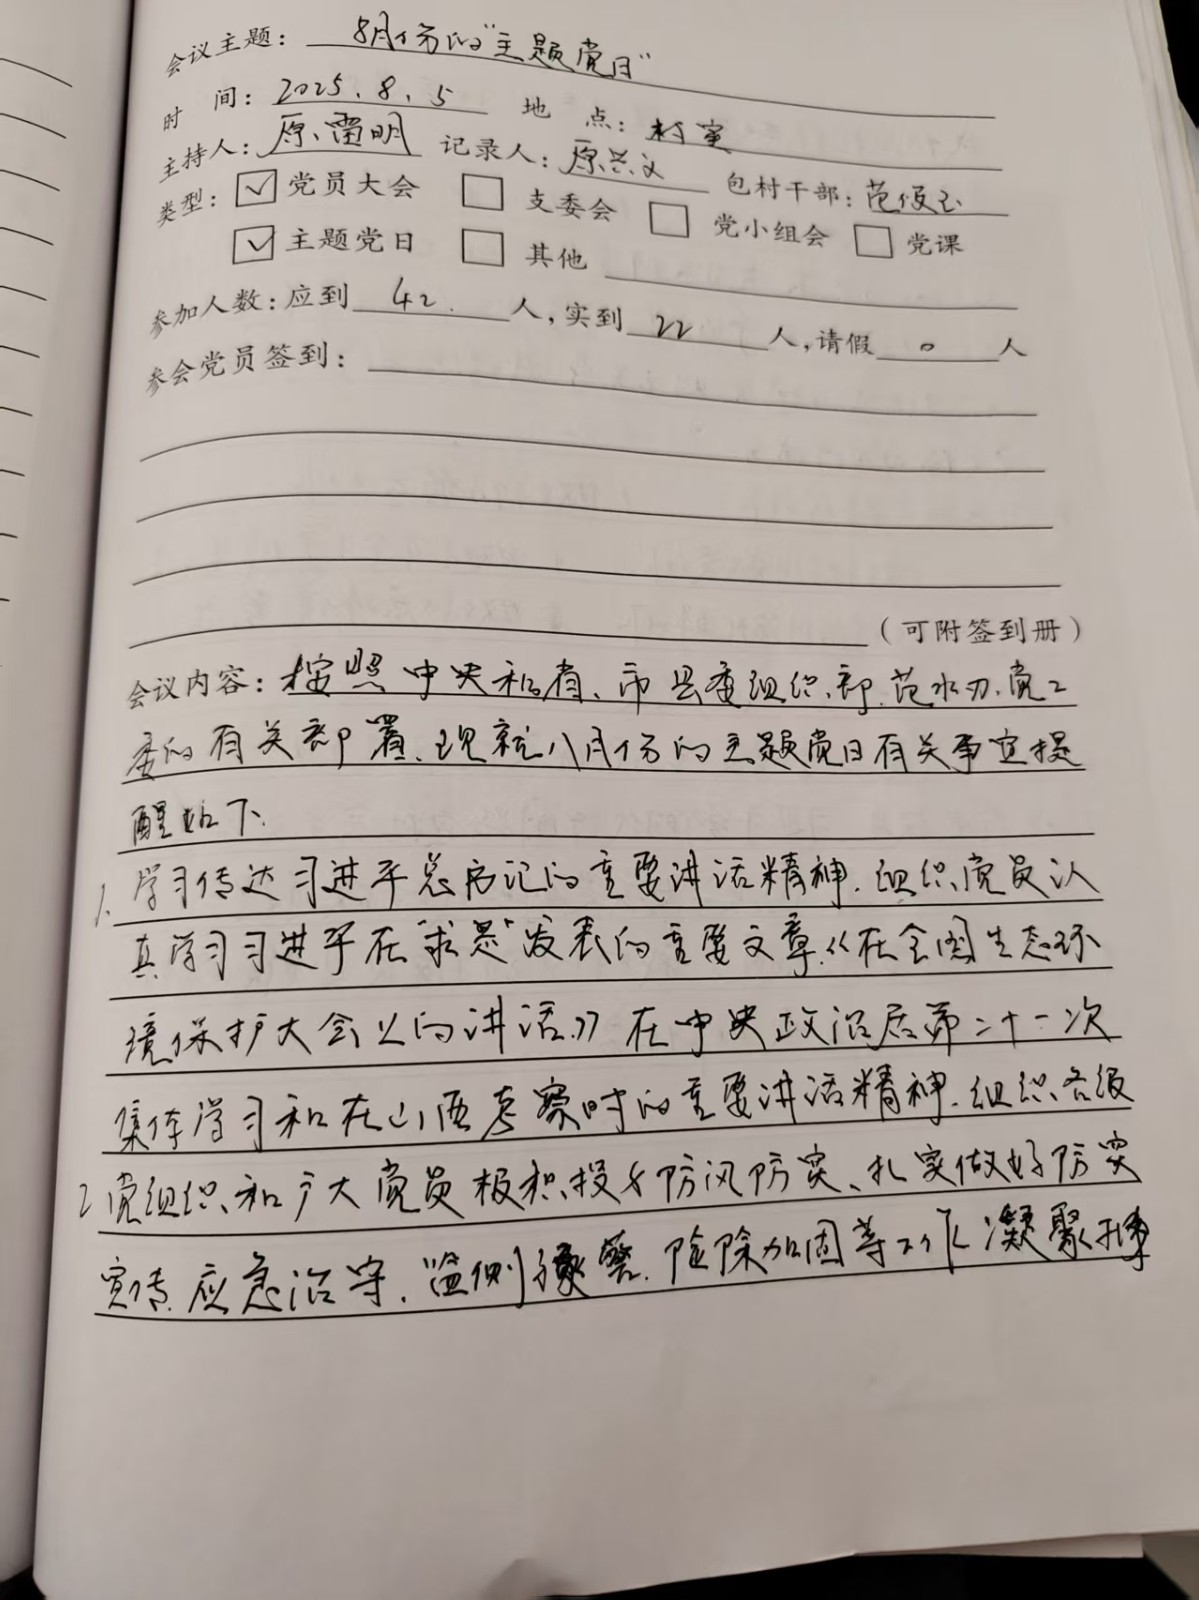 会议主题：8月份的"主题党日"
时 间：2025.8.5 地 点：村室
主持人：原雷明 记录人：原兴义 包村干部：范俊玉
类型：☑党员大会 □支委会 □党小组会 □党课
☑主题党日 □其他
参加人数：应到42.人，实到22人，请假0人
参会党员签到：
（可附签到册）
会议内容：按照中央和省、市县委组织部、范水办、党工
委的有关部署、现就八月份的主题党日有关事宜提
醒如下.
1.学习传达习进平总书记的重要讲话精神.组织党员认
真学习习进平在"求是"发表的重要文章《在全国生态环
境保护大会上的讲话》在中央政治局第二十一次
集体学习和在山西考察时的重要讲话精神.组织各级
2党组织和广大党员极积投身防汛防突、扎实做好防突
宣传.应急治守.监侧预警.险除加固等工作凝聚